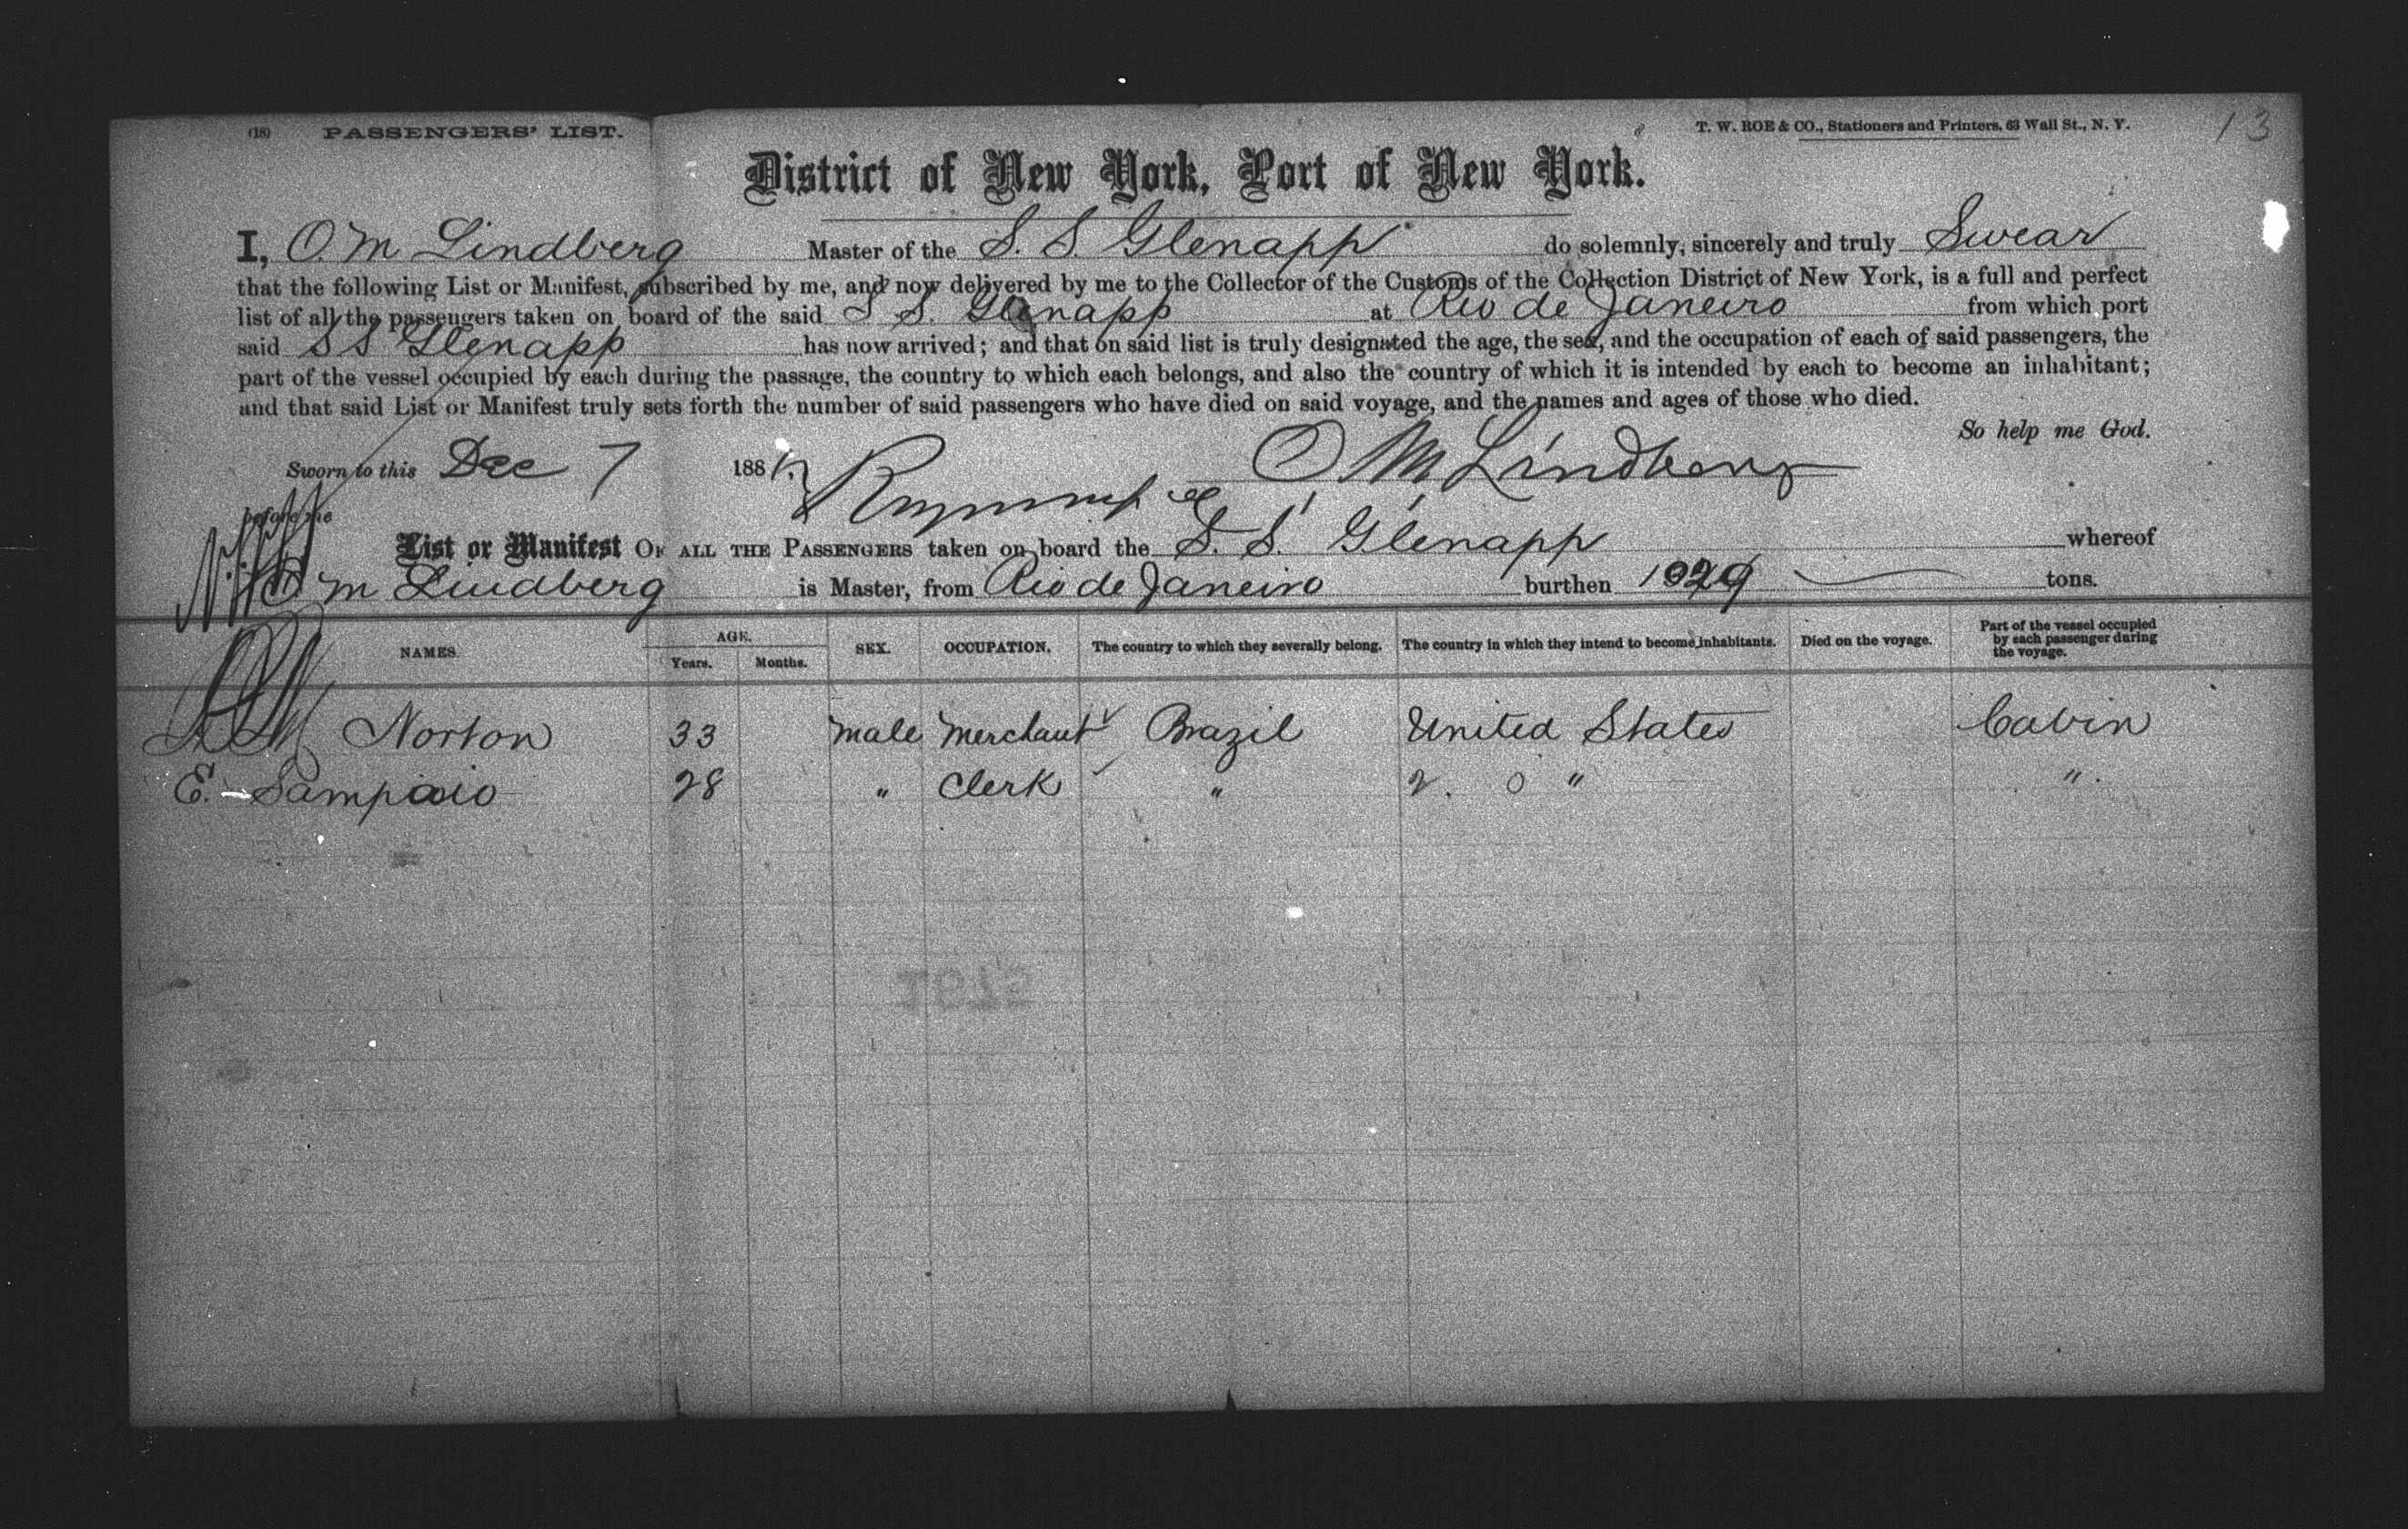 (18) PASSENGERS' LIST.
T. W. ROE & CO., Stationers and Printers, 63 Wall St., N. Y.
13
District of New York, Port of New York.
I, O. M Lindberg Master of the S. S. Glenapp do solemnly, sincerely and truly Swear
that the following List or Manifest, subscribed by me, and now delivered by me to the Collector of the Customs of the Collection District of New York, is a full and perfect
list of all the passengers taken on board of the said S S. Glenapp at Rio de Janeiro from which port
said S S Glenapp has now arrived; and that on said list is truly designated the age, the sex, and the occupation of each of said passengers, the
part of the vessel occupied by each during the passage, the country to which each belongs, and also the country of which it is intended by each to become an inhabitant;
and that said List or Manifest truly sets forth the number of said passengers who have died on said voyage, and the names and ages of those who died.
So help me God.
Sworn to this Dec 7 188 O M Lindberg
before me
List or Manifest OF ALL THE PASSENGERS taken on board the S. S. Glenapp whereof
O M Lindberg is Master, from Rio de Janeiro burthen 1929 tons.
NAMES. AGE. Years. Months. SEX. OCCUPATION. The country to which they severally belong. The country in which they intend to become inhabitants. Died on the voyage. Part of the vessel occupied by each passenger during the voyage.
Norton 33 Male Merchant Brazil United States Cabin
E. Sampaio 28 " Clerk " 2. 0 " "